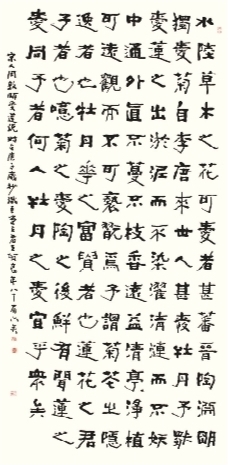 水陸草木之花可愛者甚蕃晉陶淵明
獨愛菊自李唐來世人甚愛牡丹予獨
愛蓮之出淤泥而不染濯清漣而不妖
中通外直不蔓不枝香遠益清亭淨植
可遠觀而不可褻翫焉予謂菊花之隱
逸者也牡丹花之富貴者也蓮花之君
子者也噫菊之愛陶之後鮮有聞蓮之
愛同予者何人牡丹之愛宜乎衆矣
宋人周敦頤愛蓮說